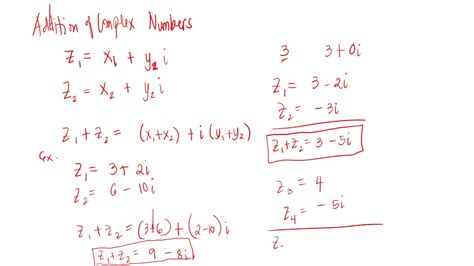 Addition of Complex Numbers
z₁ = x₁ + y₁ i
z₂ = x₂ + y₂ i
z₁ + z₂ = (x₁+x₂) + i (y₁+y₂)
Ex.
z₁ = 3 + 2i
z₂ = 6 - 10i
z₁ + z₂ = (3+6) + (2-10) i
z₁ + z₂ = 9 - 8i
3 3 + 0i
z₁ = 3 - 2i
z₂ = -3i
z₁ + z₂ = 3 - 5i
z₃ = 4
z₄ = -5i
z.